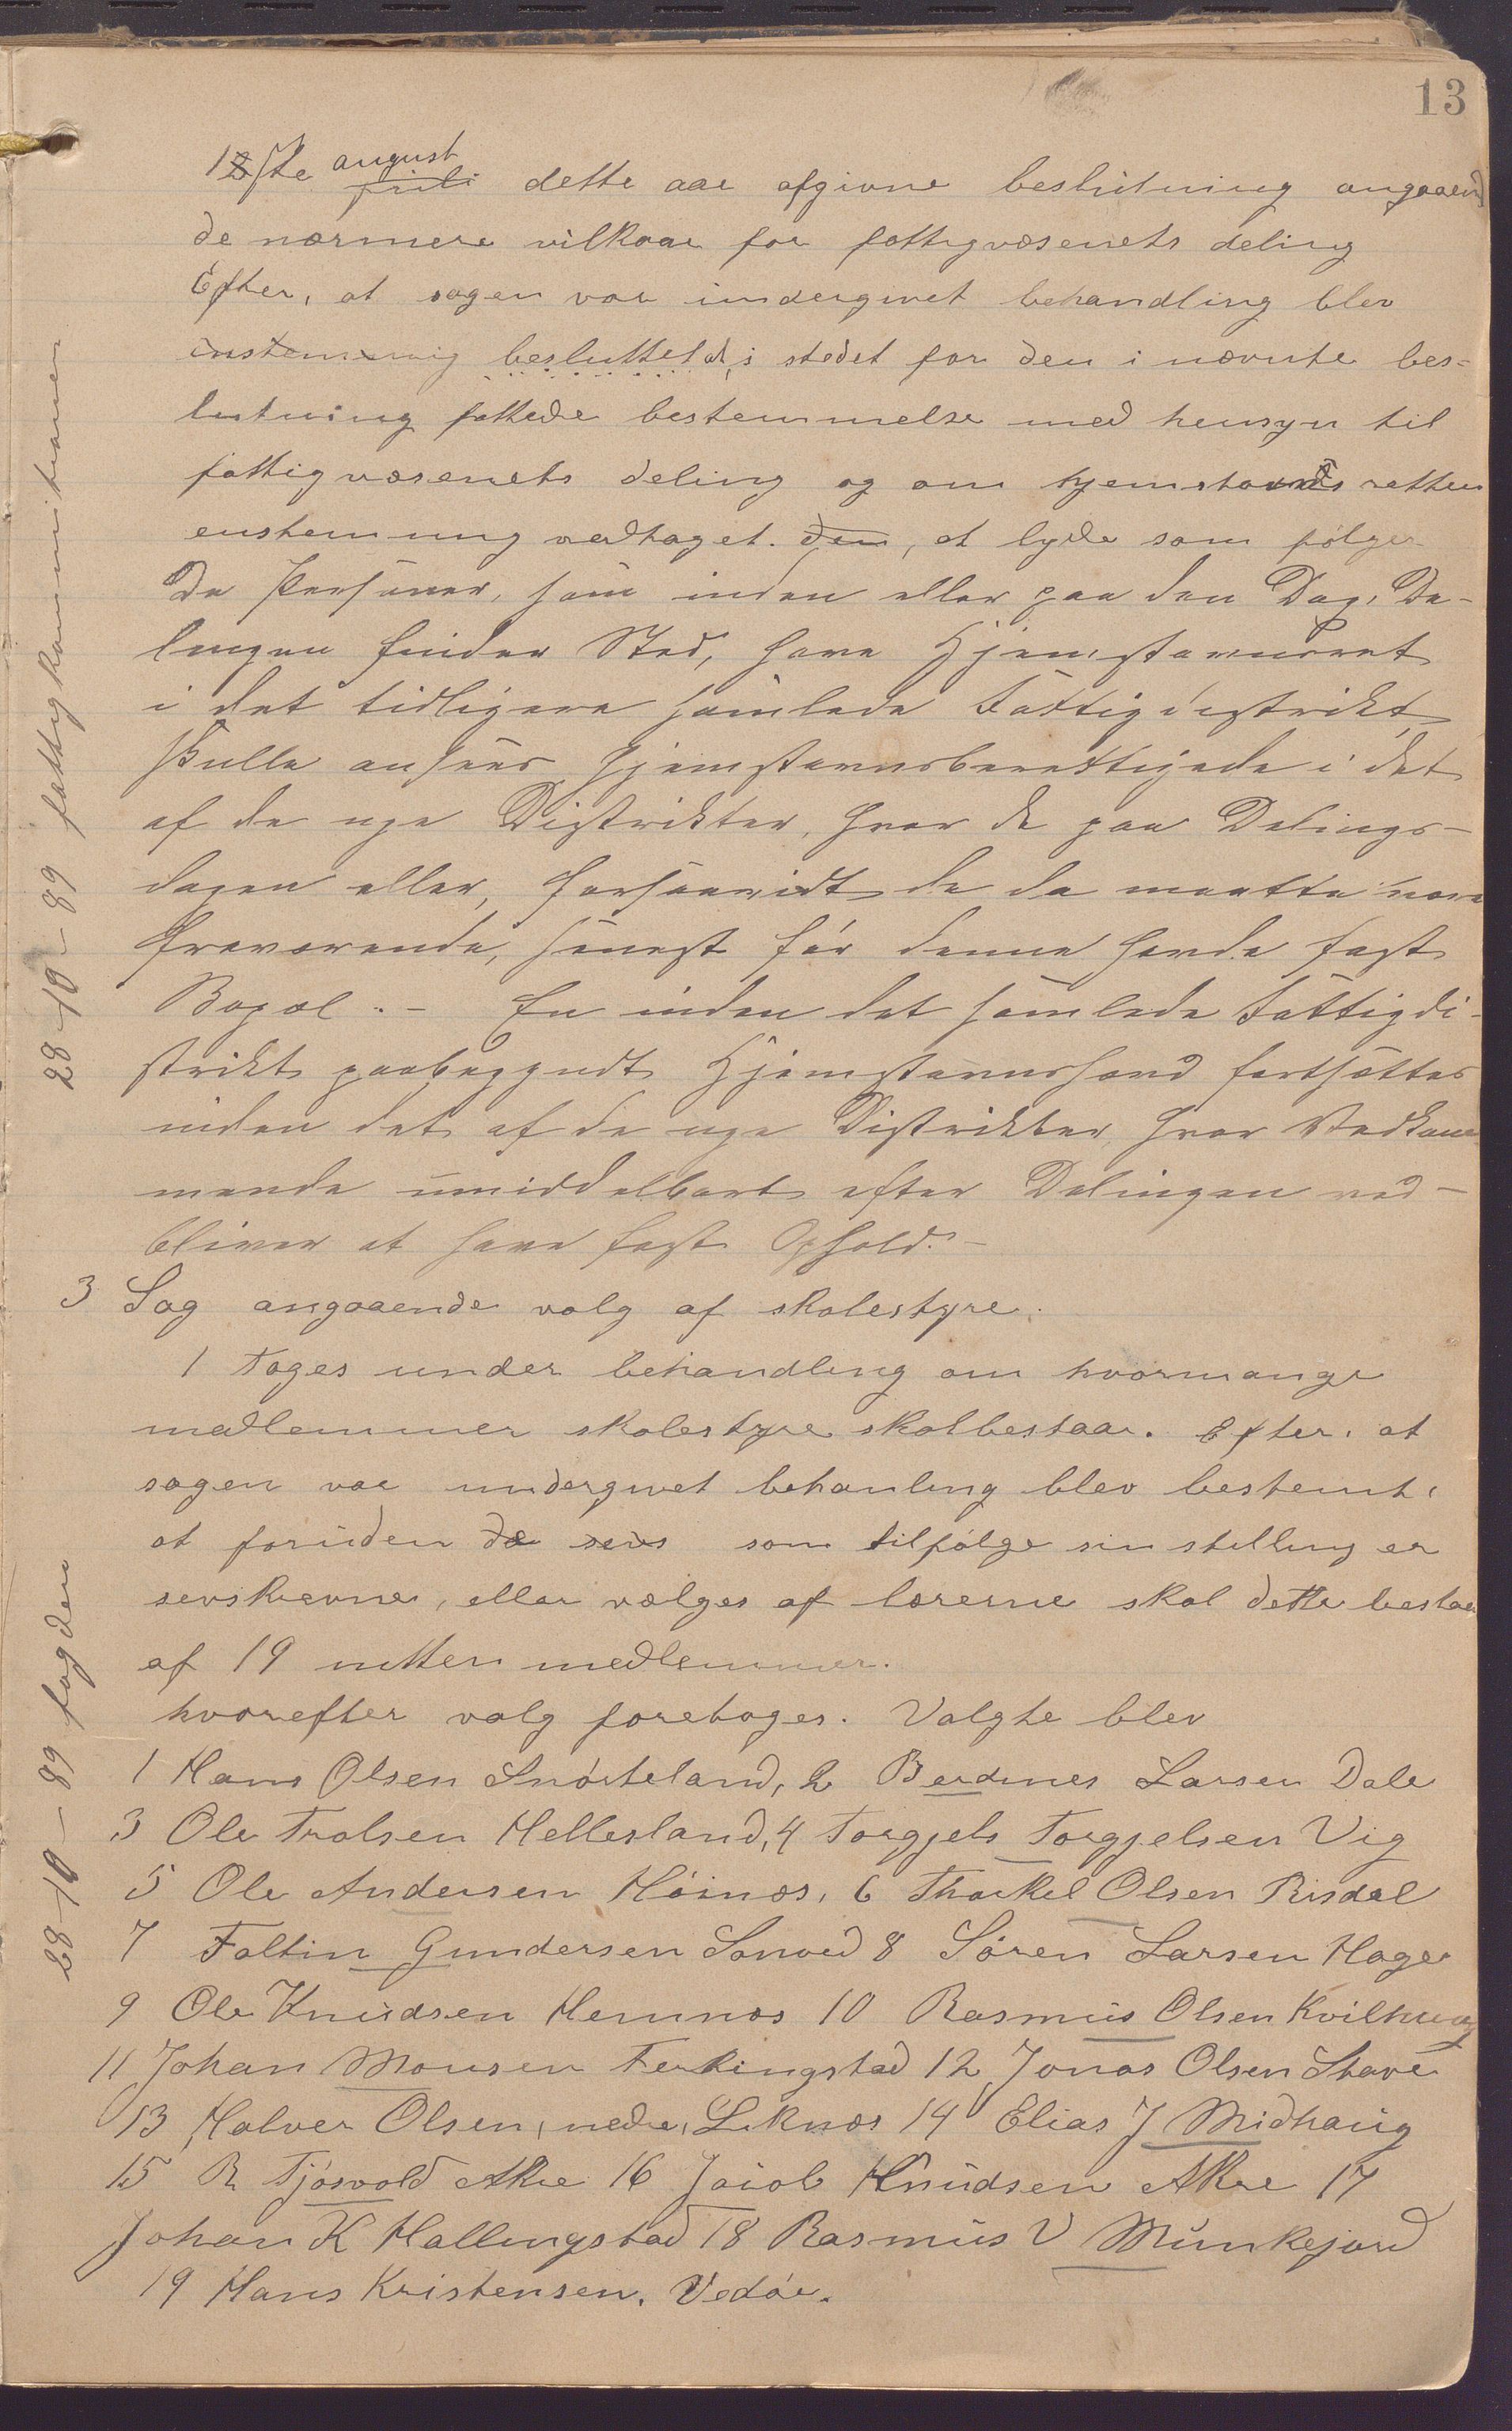 13
1ste august juli dette aar afgivne beslutning angaaend
de nærmere vilkaar for fattigvæsenets deling
Efter, at sagen var undergivet behandling blev
enstemmig besluttet at, i stedet for den i nævnte bes-
lutning fattede bestemmelse med hensyn til
fattigvæsenets deling og om hjemstavnsretten
enstemmig vedtaget. den, at lyde som følger
De Personer, som inden eller paa den Dag, De-
lingen finder Sted, have Hjemstavnsret
i det tidligere samlede Fattigdistrikt
skulle ansees hjemstavnsberettigede i det
af de nye Distrikter, hvor de paa Delings-
dagen eller, forsaavidt de da maatte være
fraværende, senest før denne havde fast
Bopæl. - En inden det samlede Fattigdi-
strikt paabegyndt Hjemstavnshævd fortsættes
inden det af de nye Distrikter, hvor Vedkom
mende umiddelbart efter Delingen ved-
bliver at have fast Ophold. -
3 Sag angaaende valg af skolestyre.
1 Toges under behandling om hvormange
medlemmer skolestyre skal bestaar. Efter, at
sagen var undergivet behanling blev bestemt,
at foruden de som tilfølge sin stilling er
selvskrevne, eller vælges af lærerne skal dette bestaa
af 19 nitten medlemmer.
hvorefter valg foretoges. Valgte blev
1 Hans Olsen Snørteland, 2 Berdines Larsen Dale
3 Ole Trolsen Hellesland, 4 Torgjels Torgjelsen Vig
5 Ole Andersen Høinæs, 6 Thorkel Olsen Risdal
7 Foltin Gundersen Sanved 8 Søren Larsen Hage
9 Ole Knudsen Hemnæs 10 Rasmus Olsen Kvilhaug
11 Johan Monsen Ferkingstad 12 Jonas Olsen Stave
13 Halver Olsen, nedre, Liknæs 14 Elias J Midhaug
15 R Tjøsvold Akre 16 Jacob Knudsen Akre 17
Johan K Hallingstad 18 Rasmus V Munkejord
19 Hans Kristensen. Vedøe.
28-10-89 fattigkommissionen
28-10-89 fogden